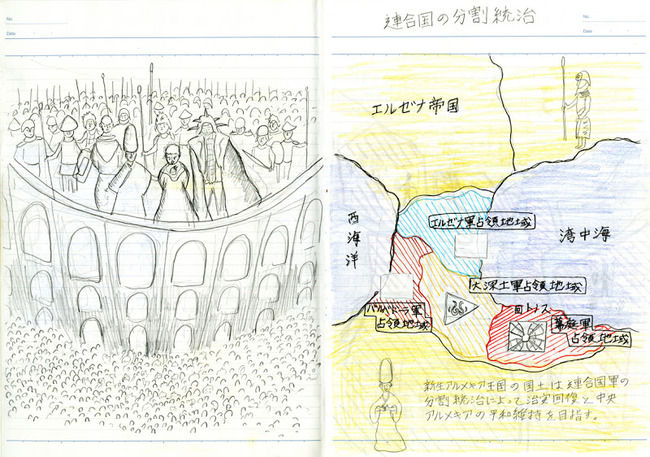 No.
Date
No.
Date
連合国の分割統治
エルゼナ帝国
エルゼナ軍占領地域
西海洋
湾中海
大深土軍占領地域
旧トノス
バルバドーラ軍
占領地域
幕庭軍
占領地域
新生アルメキア王国の国土は連合国軍の
分割統治によって治安回復と中央
アルメキアの平和維持を目指す。